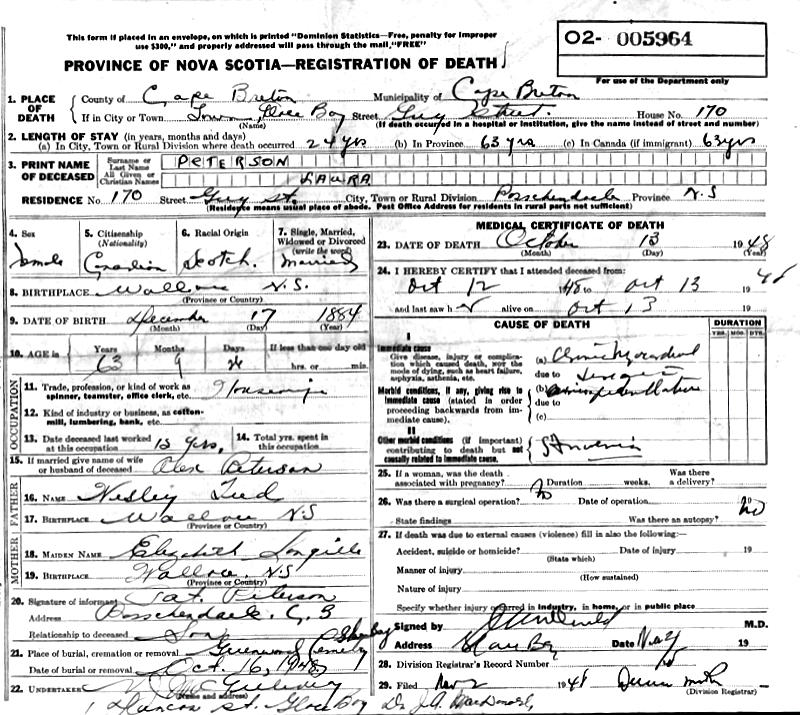 This form if placed in an envelope, on which is printed "Dominion Statistics—Free, penalty for improper
use $300," and properly addressed will pass through the mail, "FREE"
O2- 005964
PROVINCE OF NOVA SCOTIA—REGISTRATION OF DEATH
For use of the Department only
1. PLACE OF DEATH
County of Cape Breton Municipality of Cape Breton
If in City or Town Town Glace Bay Street Guy Street House No. 170
(Name) (If death occurred in a hospital or institution, give the name instead of street and number)
2. LENGTH OF STAY (in years, months and days)
(a) In City, Town or Rural Division where death occurred 24 yrs (b) In Province 63 yrs (c) In Canada (if immigrant) 63 yrs
3. PRINT NAME OF DECEASED
Surname or Last Name PETERSON
All Given or Christian Names LAURA
RESIDENCE No. 170 Street Guy St. City, Town or Rural Division Passchendaele Province N.S
(Residence means usual place of abode. Post Office Address for residents in rural parts not sufficient)
4. Sex
female
5. Citizenship (Nationality)
Canadian
6. Racial Origin
Scotch.
7. Single, Married, Widowed or Divorced (write the word)
Married
8. BIRTHPLACE Wallace N.S.
(Province or Country)
9. DATE OF BIRTH December 17 1884
(Month) (Day) (Year)
10. AGE in
Years Months Days If less than one day old
63 9 26 hrs. or min.
OCCUPATION
11. Trade, profession, or kind of work as spinner, teamster, office clerk, etc. Housewife
12. Kind of industry or business, as cotton-mill, lumbering, bank, etc.
13. Date deceased last worked at this occupation 15 yrs, 14. Total yrs. spent in this occupation
15. If married give name of wife or husband of deceased Alex Peterson
FATHER
16. NAME Nesley
17. BIRTHPLACE Wallace N.S
(Province or Country)
MOTHER
18. MAIDEN NAME Elizabeth Langille
19. BIRTHPLACE Wallace. N.S
(Province or Country)
20. Signature of informant Pat. Peterson
Address Passchendaele. C.B
Relationship to deceased Son
21. Place of burial, cremation or removal Greenwood Cemetery Glace Bay
Date of burial or removal Oct. 16, 1948
22. UNDERTAKER
(Name and address)
St. Glace Bay
MEDICAL CERTIFICATE OF DEATH
23. DATE OF DEATH October 13 1948
(Month) (Day) (Year)
24. I HEREBY CERTIFY that I attended deceased from:
Oct 12 1948 to Oct 13 1948
and last saw h r alive on Oct 13 19
CAUSE OF DEATH
DURATION
YRS. MOS. DYS.
I
Immediate cause
Give disease, injury or complication which caused death, not the mode of dying, such as heart failure, asphyxia, asthenia, etc.
(a) Chronic Myocardial
due to
Morbid conditions, if any, giving rise to immediate cause (stated in order proceeding backwards from immediate cause).
(b)
due to
(c)
II
Other morbid conditions (if important) contributing to death but not causally related to immediate cause.
25. If a woman, was the death associated with pregnancy? Duration weeks. Was there a delivery?
26. Was there a surgical operation? no Date of operation 19
State findings Was there an autopsy? no
27. If death was due to external causes (violence) fill in also the following:—
Accident, suicide or homicide? Date of injury 19
(State which)
Manner of injury
(How sustained)
Nature of injury
Specify whether injury occurred in industry, in home, or in public place
Signed by M.D.
Address Glace Bay Date Nov 2 19
28. Division Registrar's Record Number
29. Filed Nov 2 1948
(Division Registrar)
Dr. J.A. MacDonald,